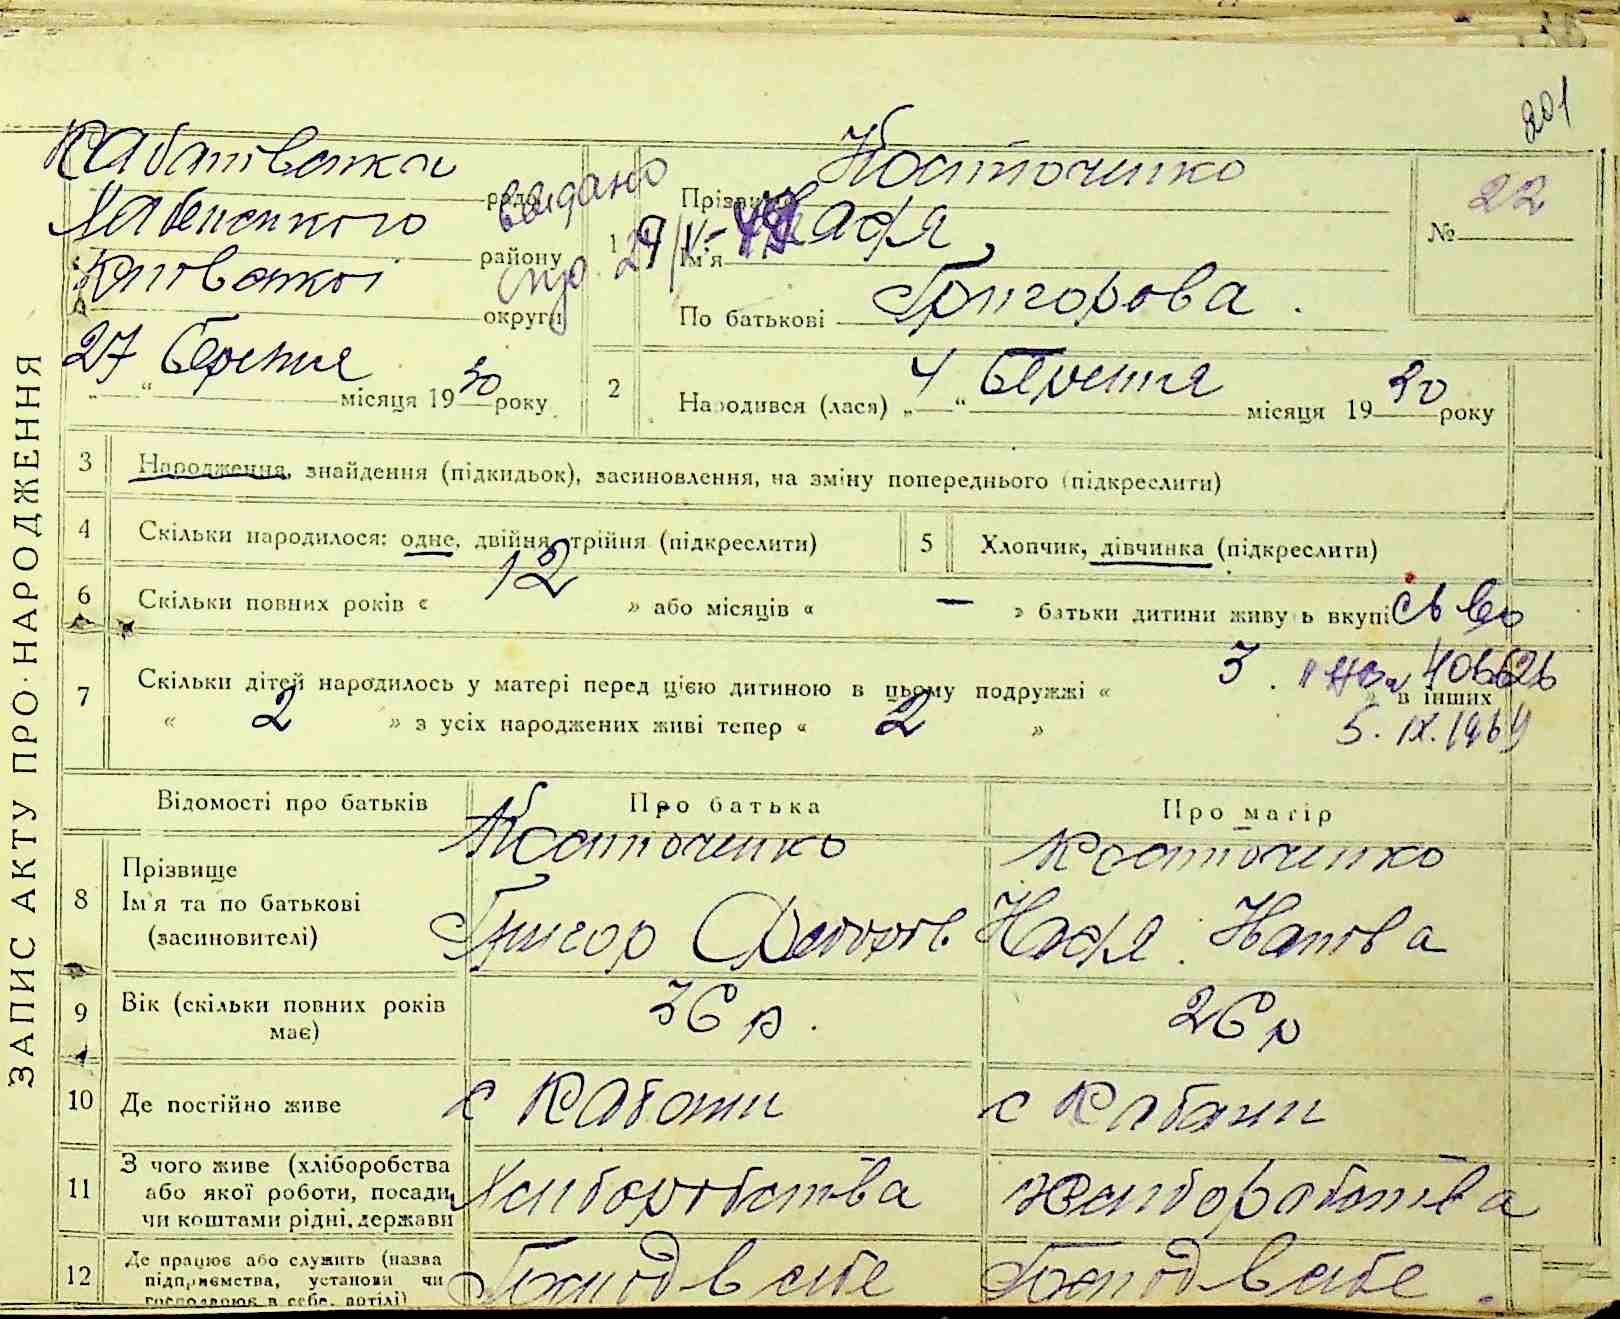 201
ЗАПИС АКТУ ПРО НАРОДЖЕННЯ
ради
району
Киівськоі
округи
27 Березня
„—“ місяця 1930 року
видано
1
Прізвище Костюченко
Ім'я
По батькові Григорова.
№ 22
2
Народився (лася) „4“ Березня місяця 1930 року
3 Народження, знайдення (підкидьок), засиновлення, на зміну попереднього (підкреслити)
4 Скільки народилося: одне, двійня, трійня (підкреслити)
5 Хлопчик, дівчинка (підкреслити)
6 Скільки повних років « 12 » або місяців « — » батьки дитини живуть вкупі
7 Скільки дітей народилось у матері перед цією дитиною в цьому подружжі « 3 » в інших
« 2 » з усіх народжених живі тепер « 2 »
5. IX. 1969
Відомості про батьків Про батька Про матір
8 Прізвище
Ім'я та по батькові
(засиновителі)
Костюченко
Григор
Костюченко
9 Вік (скільки повних років має)
36 р.
26 р
10 Де постійно живе
с Кабани
с Кабани
11 З чого живе (хліборобства
або якої роботи, посади,
чи коштами рідні, держави
Хліборобства
Хліборобства
12 Де працює або служить (назва
підприємства, установи чи
господарює в себе, потілі)
Господ в себе
Господ в себе